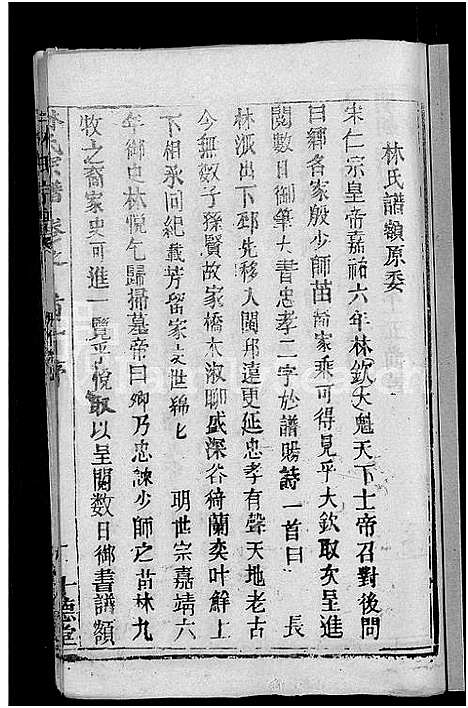 林氏譜額原委
宋仁宗皇帝嘉祐六年林欽大魁天下士帝召對後問
曰鄉各家殷少師苗裔家乘可得見乎大欽取次呈進
閱數日御筆大書忠孝二字於譜賜詩一首曰　　長
林派出下邳先移入閩邦遠更延忠孝有聲天地老古
今無數子孫賢故家橋木淑聊盛深谷猗蘭奕叶鮮上
下相承同紀載芳留家史世綿匕　　明世宗嘉靖六
年御史林悅乞歸掃墓帝曰卿乃忠諫少師之苗林九
牧之裔家史可進一覽乎悅取以呈閱數日御書譜額
氏宗譜
十德堂